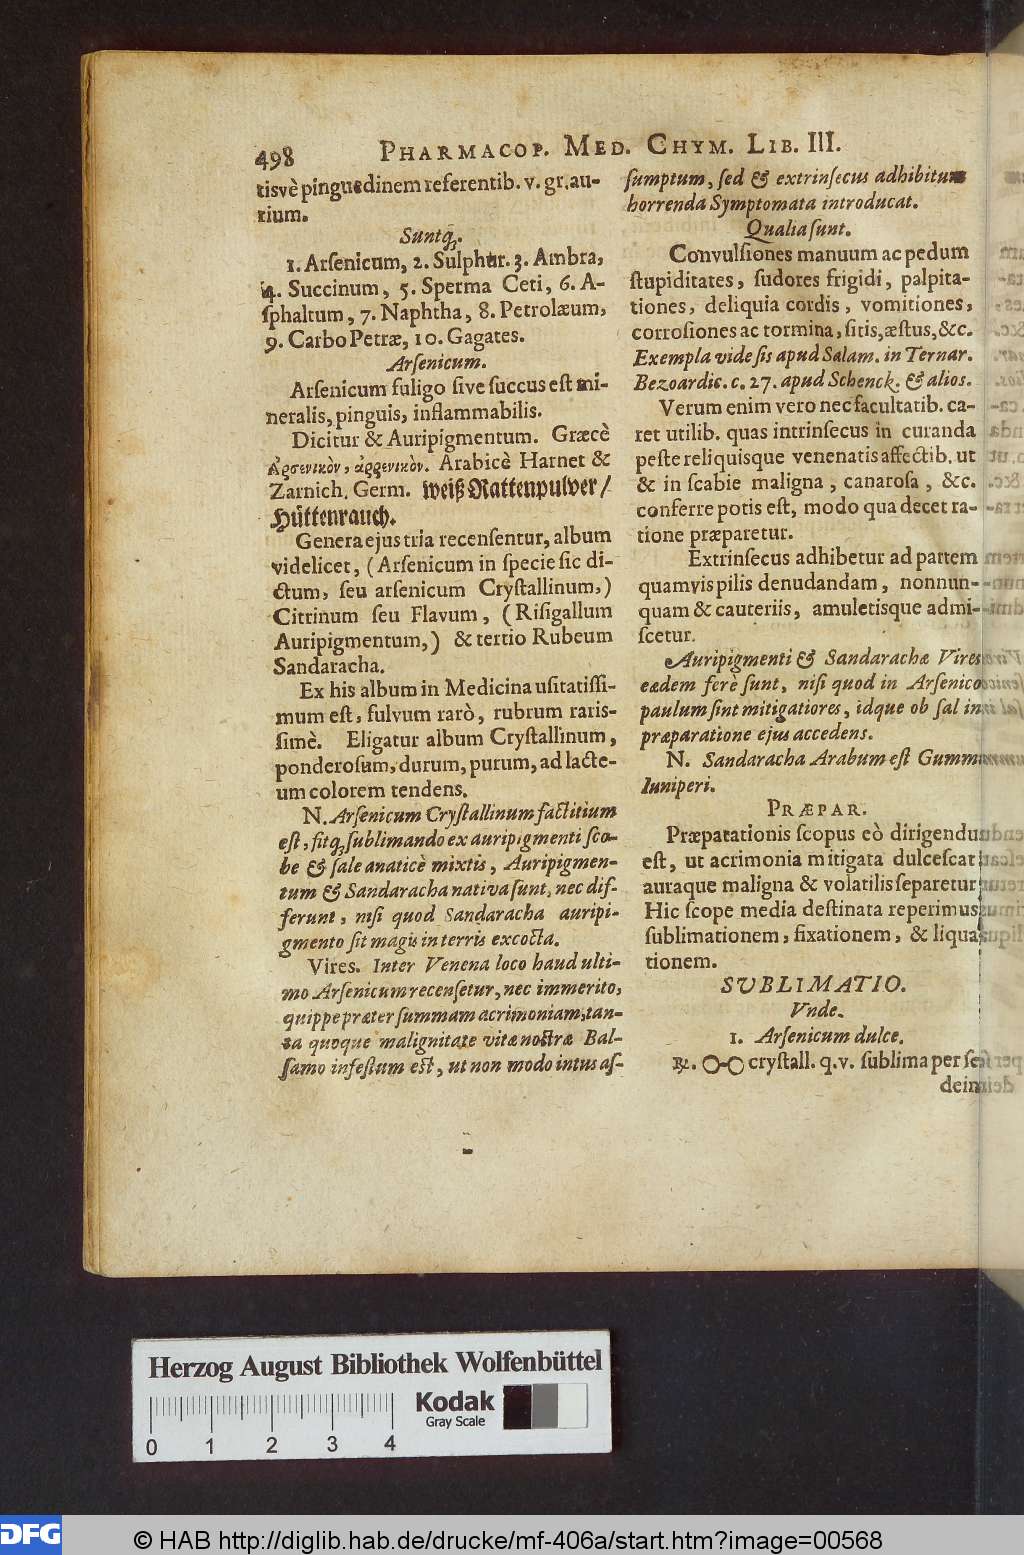 498 PHARMACOP. MED. CHYM. LIB. III.
tisvè pinguedinem referentib. v. gr. au-
rium.
Suntq́;.
1. Arſenicum, 2. Sulphur. 3. Ambra,
4. Succinum, 5. Sperma Ceti, 6. A-
ſphaltum, 7. Naphtha, 8. Petrolæum,
9. Carbo Petræ, 10. Gagates.
Arſenicum.
Arſenicum fuligo ſive ſuccus eſt mi-
neralis, pinguis, inflammabilis.
Dicitur & Auripigmentum. Græcè
Ἀρσενικὸν, ἀῤῥενικὸν. Arabicè Harnet &
Zarnich. Germ. weiß Rattenpulver/
Hüttenrauch.
Genera ejus tria recenſentur, album
videlicet, (Arſenicum in ſpecie ſic di-
ctum, ſeu arſenicum Cryſtallinum,)
Citrinum ſeu Flavum, (Riſigallum
Auripigmentum,) & tertio Rubeum
Sandaracha.
Ex his album in Medicina uſitatiſſi-
mum eſt, fulvum rarò, rubrum raris-
ſimè. Eligatur album Cryſtallinum,
ponderoſum, durum, purum, ad lacte-
um colorem tendens.
N. Arſenicum Cryſtallinum factitium
eſt, fitq́; ſublimando ex auripigmenti ſco-
be & ſale anaticè mixtis, Auripigmen-
tum & Sandaracha nativa ſunt, nec dif-
ferunt, niſi quod Sandaracha auripi-
gmento ſit magis in terris excocta.
Vires. Inter Venena loco haud ulti-
mo Arſenicum recenſetur, nec immerito,
quippe præter ſummam acrimoniam, tan-
ta quoque malignitate vitæ noſtræ Bal-
ſamo infeſtum eſt, ut non modo intus aſ-
ſumptum, ſed & extrinſecus adhibitum
horrenda Symptomata introducat.
Qualia ſunt.
Convulſiones manuum ac pedum
ſtupiditates, ſudores frigidi, palpita-
tiones, deliquia cordis, vomitiones,
corroſiones ac tormina, ſitis, æſtus, &c.
Exempla vide ſis apud Salam. in Ternar.
Bezoardic. c. 27. apud Schenck. & alios.
Verum enim vero nec facultatib. ca-
ret utilib. quas intrinſecus in curanda
peſte reliquisque venenatis affectib. ut
& in ſcabie maligna, canaroſa, &c.
conferre potis eſt, modo qua decet ra-
tione præparetur.
Extrinſecus adhibetur ad partem
quamvis pilis denudandam, nonnun-
quam & cauteriis, amuletisque admi-
ſcetur.
Auripigmenti & Sandarachæ Vires
eædem ferè ſunt, niſi quod in Arſenico
paulum ſint mitigatiores, idque ob ſal in
præparatione ejus accedens.
N. Sandaracha Arabum eſt Gummi
Iuniperi.
PRÆPAR.
Præparationis ſcopus eò dirigendus
eſt, ut acrimonia mitigata dulceſcat
auraque maligna & volatilis ſeparetur
Hic ſcope media deſtinata reperimus
ſublimationem, fixationem, & liqua-
tionem.
SVBLIMATIO.
Vnde.
1. Arſenicum dulce.
℞. O-O cryſtall. q. v. ſublima per ſe
dein
Herzog August Bibliothek Wolfenbüttel
0 1 2 3 4
Kodak
Gray Scale
DFG © HAB http://diglib.hab.de/drucke/mf-406a/start.htm?image=00568